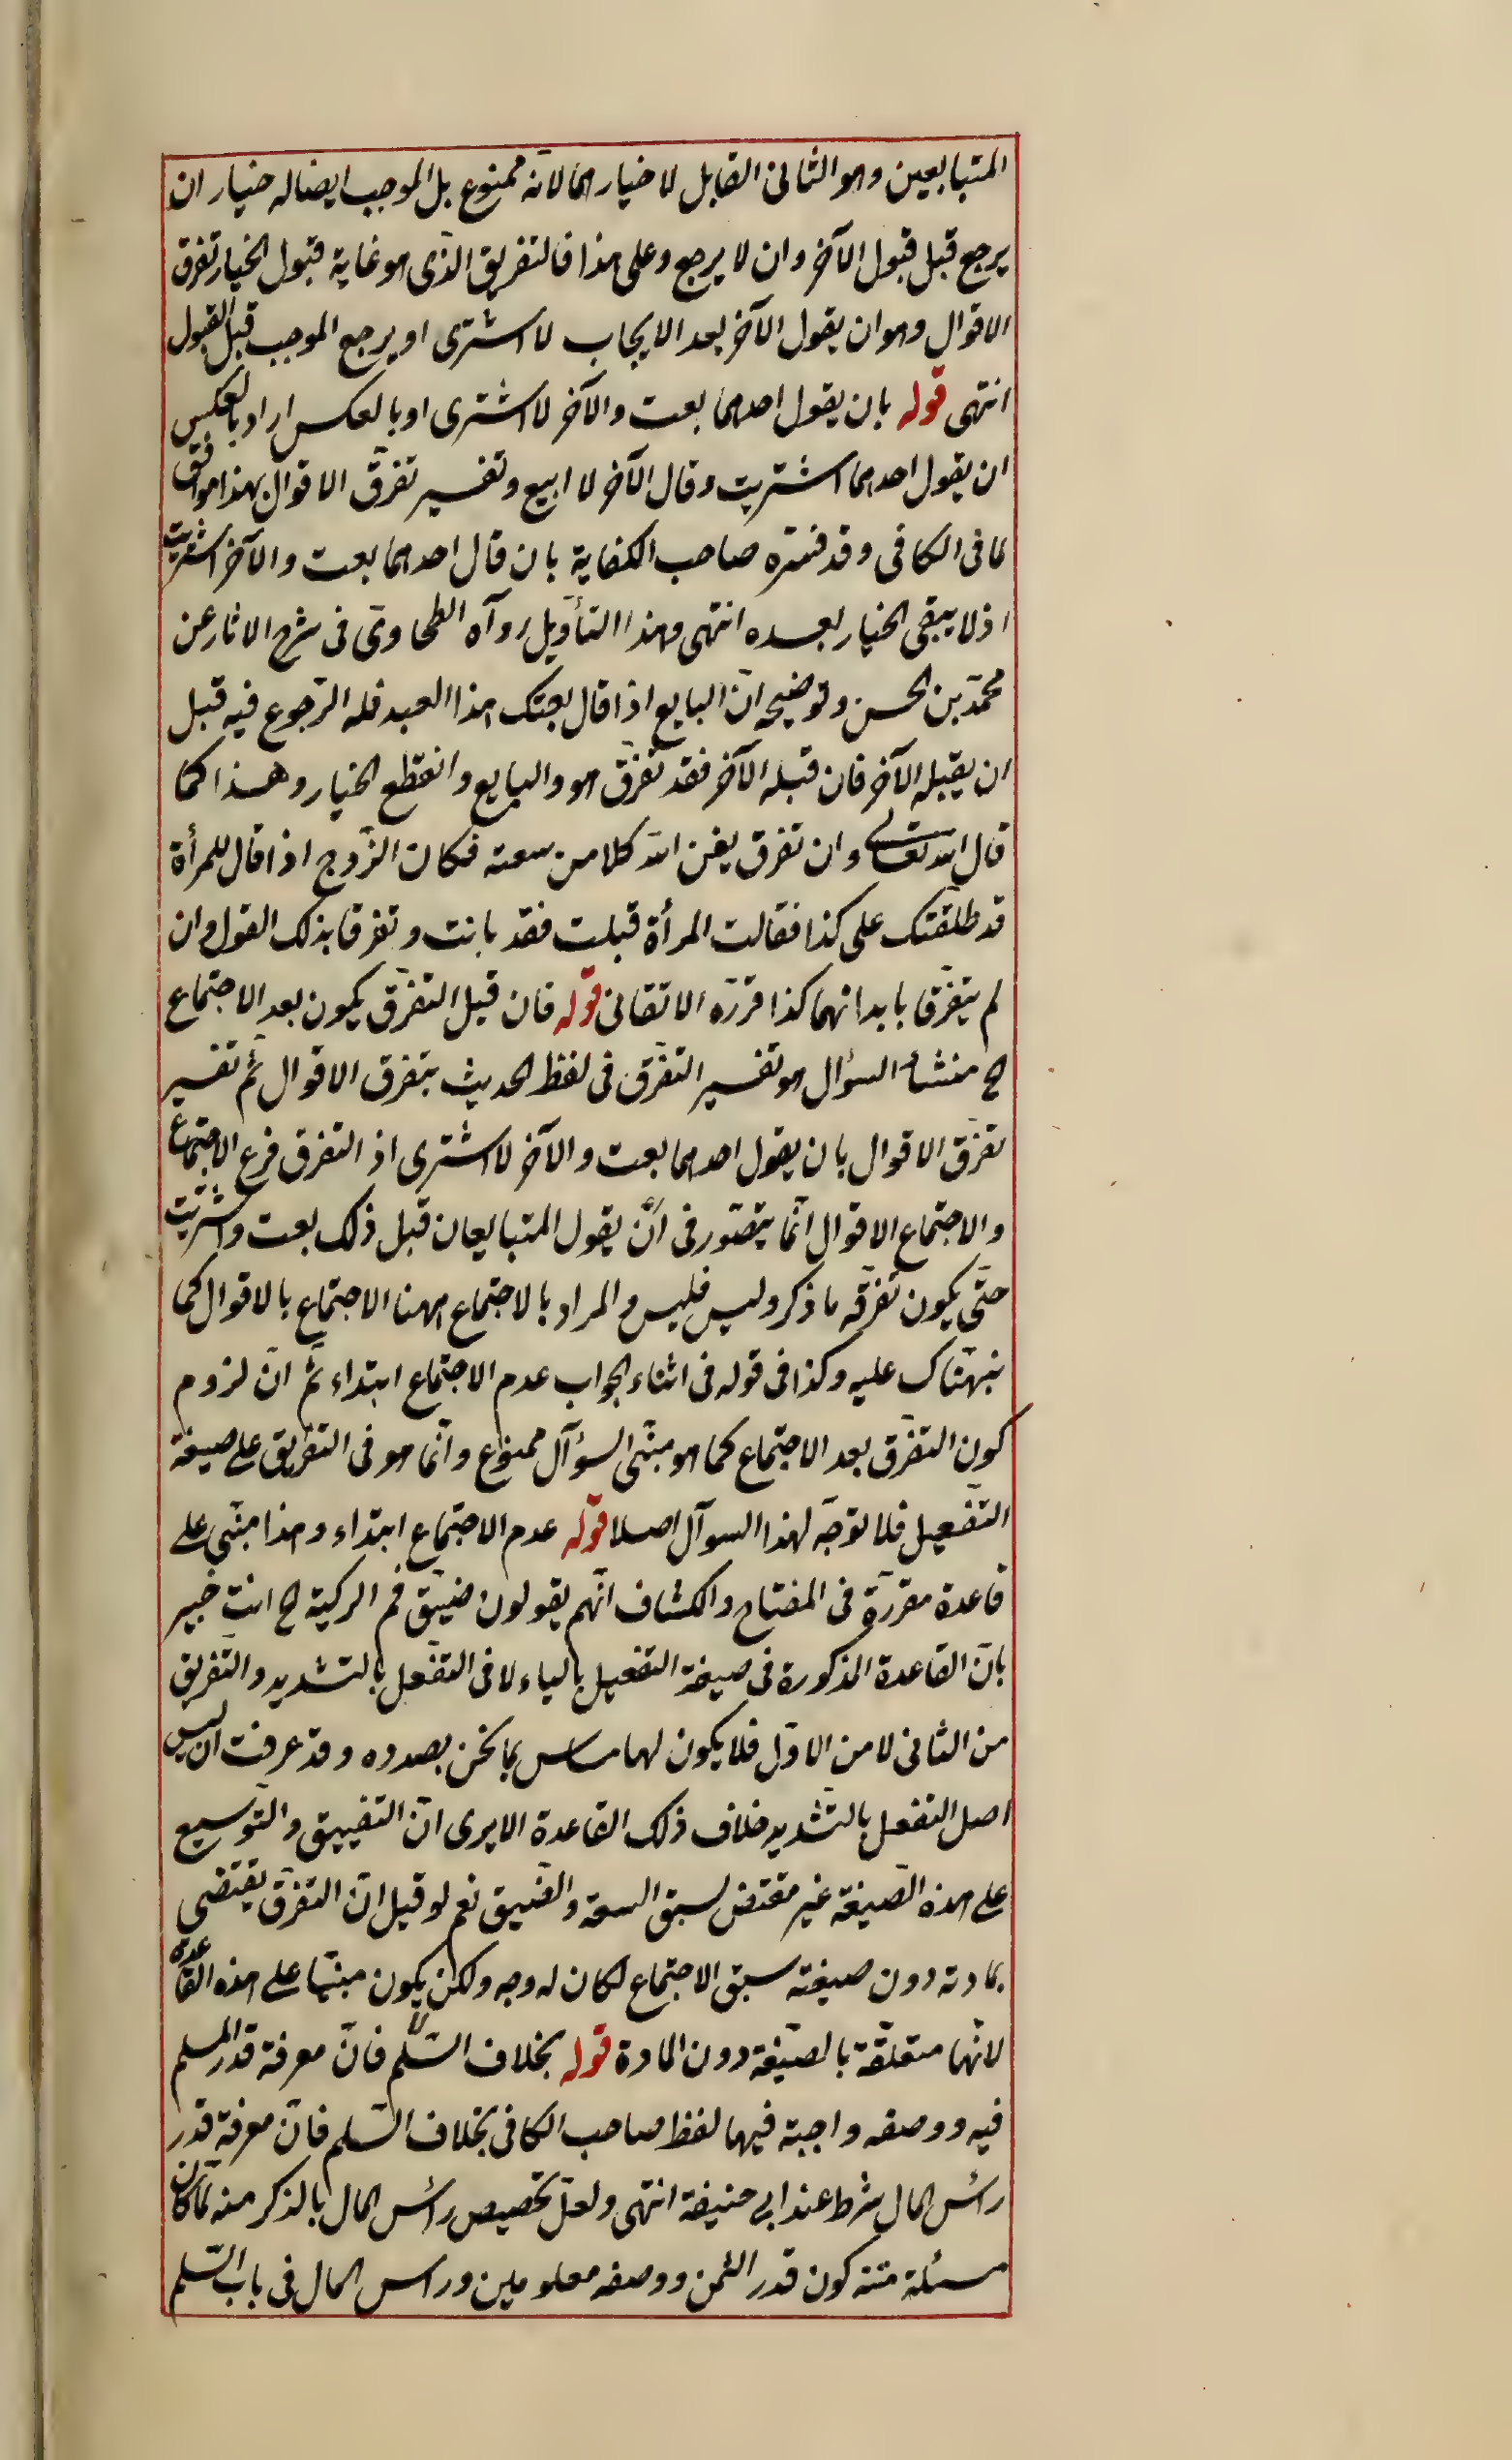 المتبايعين وهو الثانى القابل لا خيارهما لانه ممنوع بل الموجب ايضا له خيار ان
يرجع قبل قبول الآخر وان لا يرجع وعلى هذا فالتفريق الذى هو غاية قبول الخيار تفرق
الاقوال وهو ان يقول الآخر بعد الايجاب لا اشترى او يرجع الموجب قبل القبول
انتهى قوله بان يقول احدهما بعت والآخر لا اشترى او بالعكس اراد بالعكس
ان يقول احدهما اشتريت وقال الآخر لا ابيع وتفسير تفرّق الاقوال بهذا موافق
لما فى الكافى وقد فسّره صاحب الكفاية بان قال احدهما بعت والآخر اشتريت
اذ لا يبقى الخيار بعده انتهى وهذا التأويل رواه الطحاوىّ فى شرح الاثار عن
محمّد بن الحسن وتوضيحه انّ البايع اذا قال بعتك هذا العبد فله الرّجوع فيه قبل
ان يقبله الآخر فان قبله الآخر فقد تفرّق هو والبايع وانقطع الخيار وهذا كما
قال الله تعالى وان تفرق يغن الله كلا من سعته فكان الزّوج اذا قال للمرأة
قد طلقتك على كذا فقالت المرأة قبلت فقد بانت وتفرقا بذلك القول وان
لم يتفرّقا بابدانهما كذا قرّره الاتقانى قوله فان قيل التفرّق يكون بعد الاجتماع
الخ منشأ السؤال هو تفسير التفرّق فى لفظ الحديث بتفرق الاقوال ثمّ تفسير
تفرّق الاقوال بان يقول احدهما بعت والآخر لا اشترى اذ التفرق فرع الاجتماع
والاجتماع الاقوال انّما يتصّور فى أنّ يقول المتبايعان قبل ذلك بعت واشتريت
حتّى يكون تفرقه ما ذكر وليس فليس والمراد بالاجتماع ههنا الاجتماع بالاقوال كما
نبهّناك عليه وكذا فى قوله فى اثناء الجواب عدم الاجتماع ابتداء ثمّ انّ لزوم
كون التفرّق بعد الاجتماع كما هو مبنّى السؤآل ممنوع وانّما هو فى التفريق على صيغة
التفعيل فلا توجّه لهذا السوآل اصلا قوله عدم الاجتماع ابتداء وهذا مبنّى على
قاعدة مقررّة فى المفتاح والكشاف انّهم يقولون ضيّق فم الركية الخ انت خبير
بانّ القاعدة المذكورة فى صيغة التفعيل بالياء لا فى التفّعل بالتشديد والتفريق
من الثانى لا من الاوّل فلا يكون لها مساس بما نحن بصدده وقد عرفت ان ليس
اصل التفعل بالتشديد خلاف ذلك القاعدة الا يرى انّ التضييق والتوسيع
على هذه الصّيغة غير مقتض لسبق السعة والضّيق نعم لو قيل انّ التفرّق يقتضى
بمادته دون صيغته سبق الاجتماع لكان له وجه ولكن يكون مبنّيا على هذه القاعدة
لانّها متعلّقة بالصّيغة دون المادة قوله بخلاف السّلم فانّ معرفة قدر المسلم
فيه ووصفه واجبة فيها لفظ صاحب الكافى بخلاف السّلم فانّ معرفة قدر
رأس المال شرط عند ابى حنيفة انتهى ولعلّ تخصيص رأس المال بالذكر منه لمّا كان
مسئلة كون قدر الثمن ووصفه معلومين وراس المال فى باب السّلم